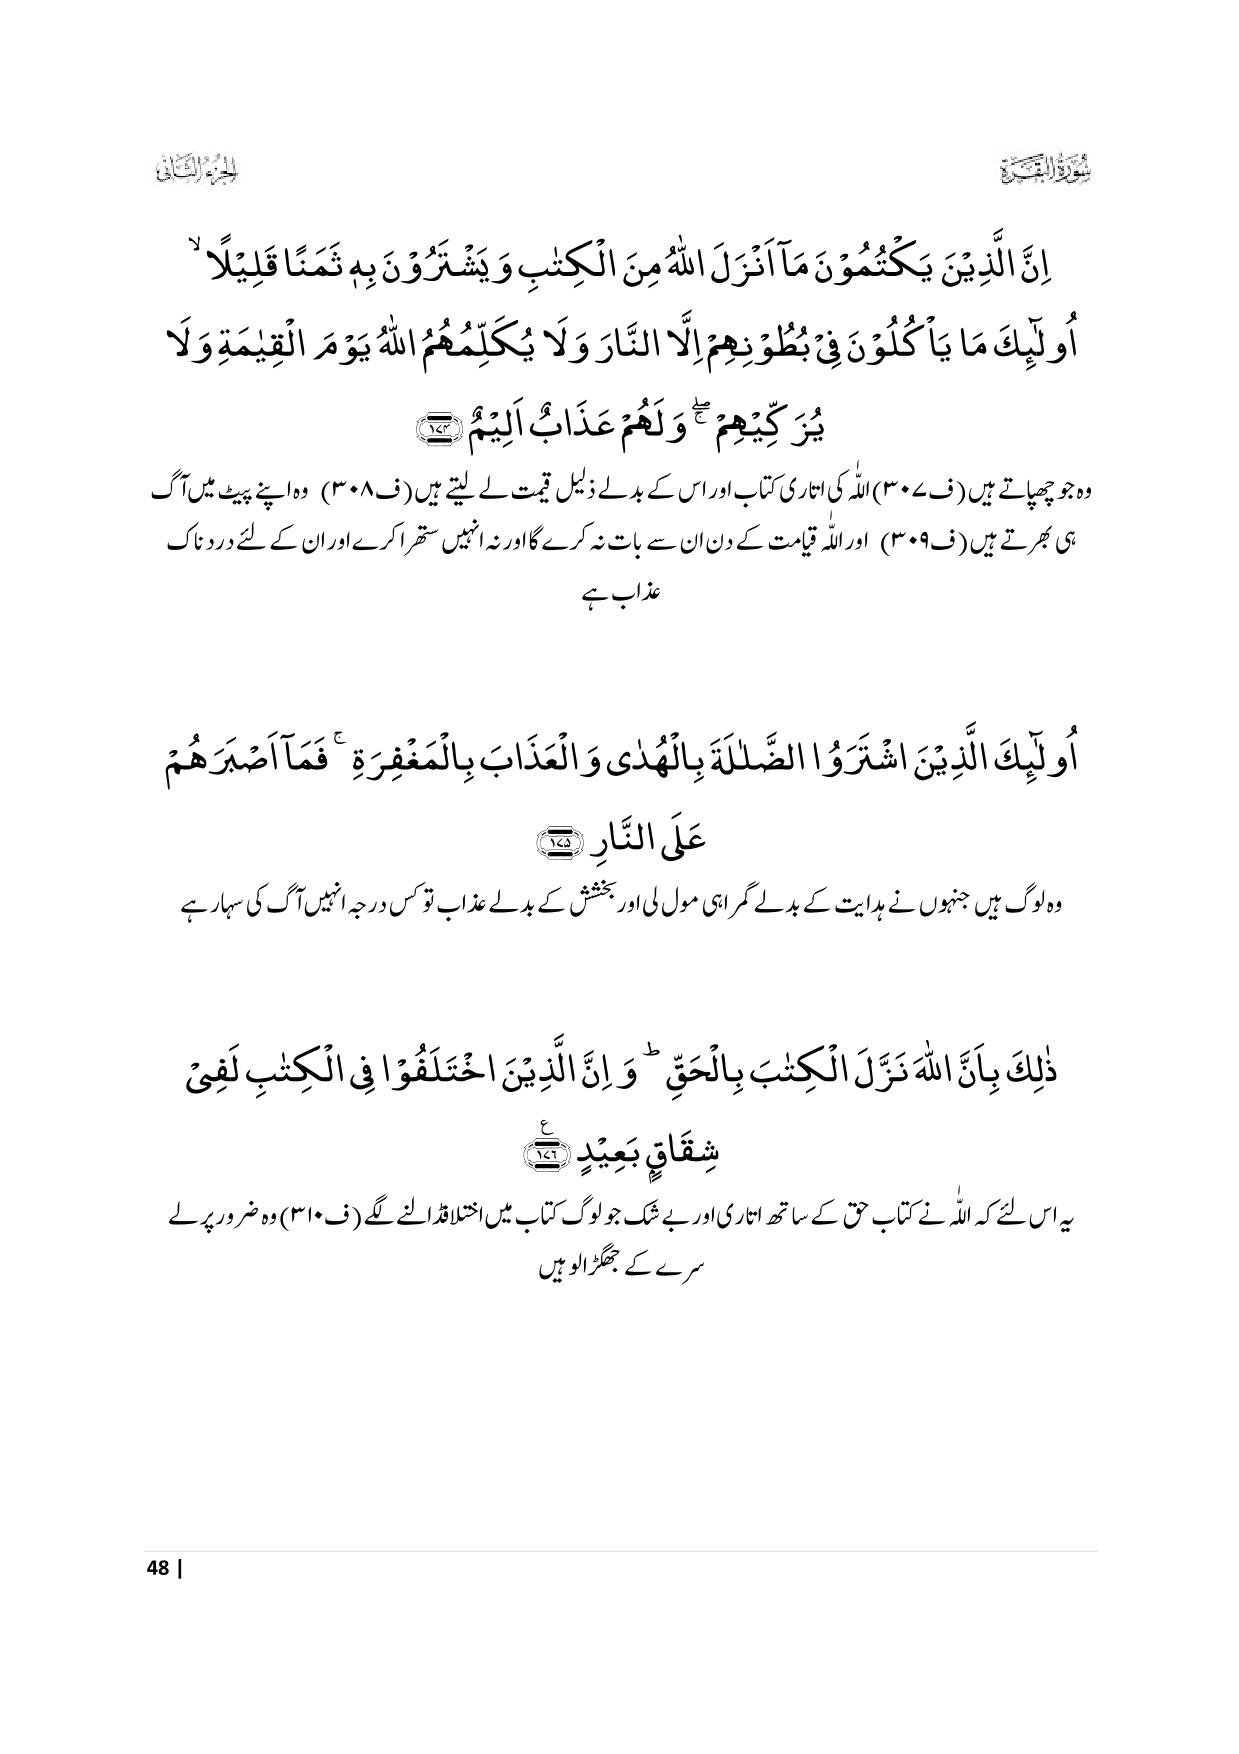 سُوْرَةُ الْبَقَرَة
الجزءالثانی
اِنَّ الَّذِیْنَ یَكْتُمُوْنَ مَاۤ اَنْزَلَ اللّٰهُ مِنَ الْكِتٰبِ وَ یَشْتَرُوْنَ بِهٖ ثَمَنًا قَلِیْلًا ۙ
اُولٰٓىِٕكَ مَا یَاْكُلُوْنَ فِیْ بُطُوْنِهِمْ اِلَّا النَّارَ وَ لَا یُكَلِّمُهُمُ اللّٰهُ یَوْمَ الْقِیٰمَةِ وَ لَا
یُزَكِّیْهِمْ ۖۚ وَ لَهُمْ عَذَابٌ اَلِیْمٌ ﴿۱۷۴﴾
وہ جو چھپاتے ہیں (ف۳۰۷) اللّٰہ کی اتاری کتاب اور اس کے بدلے ذلیل قیمت لے لیتے ہیں (ف۳۰۸) وہ اپنے پیٹ میں آگ
ہی بھرتے ہیں (ف۳۰۹) اور اللّٰہ قیامت کے دن ان سے بات نہ کرے گا اور نہ انہیں ستھرا کرے اور ان کے لئے دردناک
عذاب ہے
اُولٰٓىِٕكَ الَّذِیْنَ اشْتَرَوُا الضَّلٰلَةَ بِالْهُدٰى وَ الْعَذَابَ بِالْمَغْفِرَةِ ۚ فَمَاۤ اَصْبَرَهُمْ
عَلَى النَّارِ ﴿۱۷۵﴾
وہ لوگ ہیں جنہوں نے ہدایت کے بدلے گمراہی مول لی اور بخشش کے بدلے عذاب تو کس درجہ انہیں آگ کی سہار ہے
ذٰلِكَ بِاَنَّ اللّٰهَ نَزَّلَ الْكِتٰبَ بِالْحَقِّ ؕ وَ اِنَّ الَّذِیْنَ اخْتَلَفُوْا فِی الْكِتٰبِ لَفِیْ
شِقَاقٍۭ بَعِیْدٍ ﴿۱۷۶﴾ ع
یہ اس لئے کہ اللّٰہ نے کتاب حق کے ساتھ اتاری اور بے شک جو لوگ کتاب میں اختلاف ڈالنے لگے (ف۳۱۰) وہ ضرور پرلے
سرے کے جھگڑالو ہیں
48 |